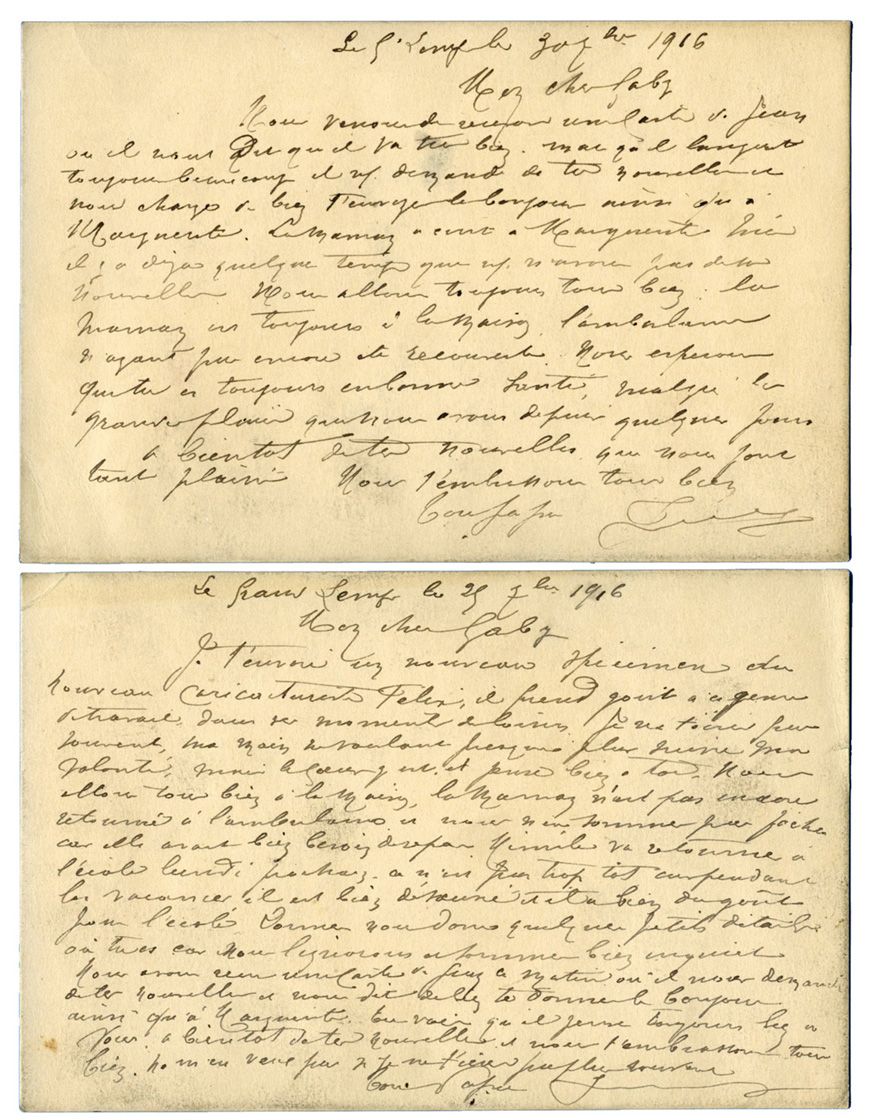 Le Gd Lemps le 30 7bre 1916
Mon cher Gaby
Nous venons de recevoir une Carte de Jean
ou il nous dit qu'il va très bien, mais qu'il languit
toujours beaucoup il ns demande de tes nouvelles et
nous charge de bien t'envoyer le bonjour ainsi qu'à
Marguerite. La Maman a écrit à Marguerite
il y a déja quelque temps que ns n'avons pas de tes
nouvelles Nous allons toujours tous bien. la
Maman est toujours à la Maison, l'ambulance
n'ayant pas encore été recouverte. Nous espérons
que tu es toujours en bonne Santé, malgré les
grandes pluies que nous avons depuis quelques jours
à bientot de tes nouvelles, qui nous font
tant plaisir Nous t'embrassons tous bien
Ton papa
Le Grand Lemps le 25 7bre 1916
Mon cher Gaby
Je t'envoie un nouveau spécimen du
nouveau Caricaturiste Félix, il prend goût à ce genre
de travail dans ses moments de loisirs. Je ne t'écris pas
souvent, ma main ne voulant presque plus suivre ma
volonté, mais le Cœur y est, et pense bien à toi. Nous
allons tous bien à la Maison, la Maman n'est pas encore
retourné à l'ambulance et nous n'en sommes pas fachés
car elle avait bien besoin de repos va retourner à
l'école lundi prochain, ce n'est pas trop tôt car pendant
les vacances, il est bien et il a bien du goût
pour l'école. Donnes nous donc quelques petits détails
où tu es car nous l'ignorons et sommes bien inquiet
Nous avons reçu une Carte de Jean ce matin où il nous demande
de tes nouvelles et nous dit de bien te donner le bonjour
ainsi qu'à Marguerite. tu vois qu'il pense toujours bien à
Vous. à bientot de tes nouvelles et nous t'embrassons tous
bien. ne m'en veux pas si je ne t'écris pas plus souvent
Ton papa